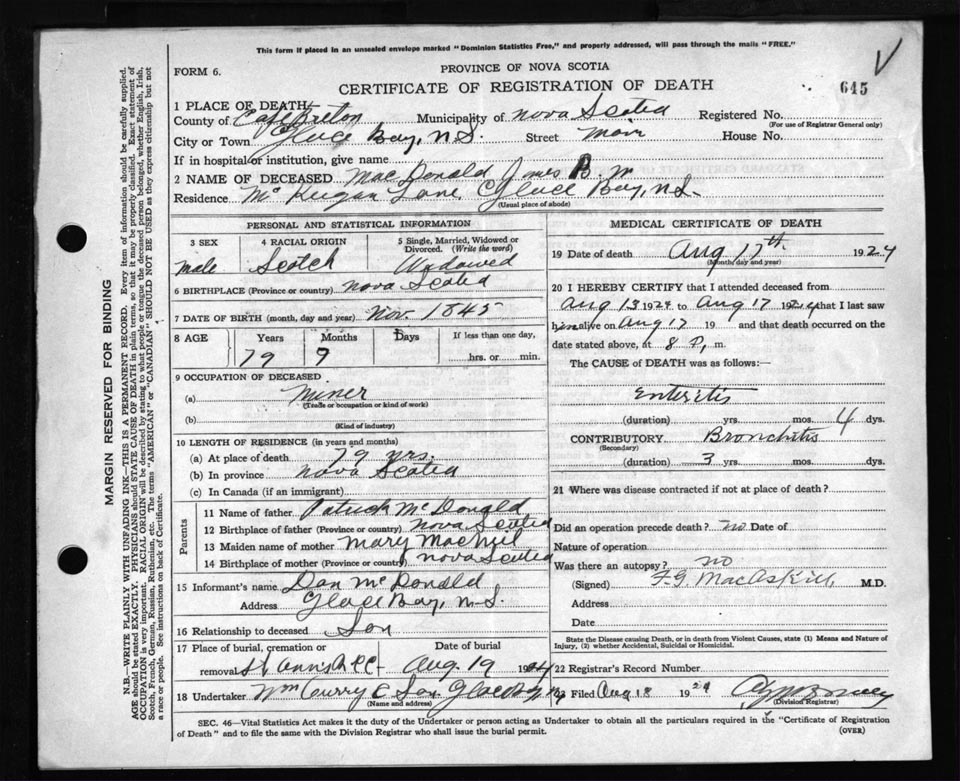 This form if placed in an unsealed envelope marked "Dominion Statistics Free," and properly addressed, will pass through the mails "FREE."
FORM 6.
PROVINCE OF NOVA SCOTIA
CERTIFICATE OF REGISTRATION OF DEATH
645
1 PLACE OF DEATH
County of Cape Breton Municipality of Nova Scotia Registered No.
(For use of Registrar General only)
City or Town Glace Bay, N.S. Street Main House No.
If in hospital or institution, give name
2 NAME OF DECEASED MacDonald James B.
Residence McKeigan Lane, Glace Bay, N.S.
(Usual place of abode)
PERSONAL AND STATISTICAL INFORMATION
3 SEX 4 RACIAL ORIGIN 5 Single, Married, Widowed or Divorced. (Write the word)
male Scotch Widowed
6 BIRTHPLACE (Province or country) Nova Scotia
7 DATE OF BIRTH (month, day and year) Nov. 1845
8 AGE Years Months Days If less than one day,
79 9 hrs. or min.
9 OCCUPATION OF DECEASED
(a) Miner
(Trade or occupation or kind of work)
(b)
(Kind of industry)
10 LENGTH OF RESIDENCE (in years and months)
(a) At place of death 79 yrs.
(b) In province Nova Scotia
(c) In Canada (if an immigrant)
Parents
11 Name of father Patrick McDonald
12 Birthplace of father (Province or country) Nova Scotia
13 Maiden name of mother Mary MacNeil
14 Birthplace of mother (Province or country) Nova Scotia
15 Informant's name Dan McDonald
Address Glace Bay, N.S.
16 Relationship to deceased Son
17 Place of burial, cremation or removal St Anns Date of burial Aug. 19 1924
18 Undertaker Wm Curry & Son Glace Bay
(Name and address)
MEDICAL CERTIFICATE OF DEATH
19 Date of death Aug 17th 1924
(Month, day and year)
20 I HEREBY CERTIFY that I attended deceased from
Aug 13 1924 to Aug 17 1924 that I last saw
him alive on Aug 17 19 and that death occurred on the
date stated above, at 8 P. m.
The CAUSE of DEATH was as follows:—
Enteritis
(duration) yrs. mos. 4 dys.
CONTRIBUTORY Bronchitis
(Secondary)
(duration) 3 yrs. mos. dys.
21 Where was disease contracted if not at place of death?
Did an operation precede death? no Date of
Nature of operation
Was there an autopsy? no
(Signed) F.G. MacAskill M.D.
Address
Date
State the Disease causing Death, or in death from Violent Causes, state (1) Means and Nature of Injury, (2) whether Accidental, Suicidal or Homicidal.
22 Registrar's Record Number
Filed Aug 18 1924
(Division Registrar)
SEC. 46—Vital Statistics Act makes it the duty of the Undertaker or person acting as Undertaker to obtain all the particulars required in the "Certificate of Registration
of Death" and to file the same with the Division Registrar who shall issue the burial permit.
(OVER)
MARGIN RESERVED FOR BINDING
N.B.—WRITE PLAINLY WITH UNFADING INK—THIS IS A PERMANENT RECORD. Every item of information should be carefully supplied.
AGE should be stated EXACTLY. PHYSICIANS should STATE CAUSE OF DEATH in plain terms, so that it may be properly classified. Exact statement of
OCCUPATION is very important. RACIAL ORIGIN will be described by stating to what people or tongue the deceased person belonged, whether English, Irish,
Scotch, French, German, Russian, Ruthenian, etc. The terms "AMERICAN" or "CANADIAN" SHOULD NOT BE USED as they express citizenship but not
a race or people. See instructions on back of Certificate.